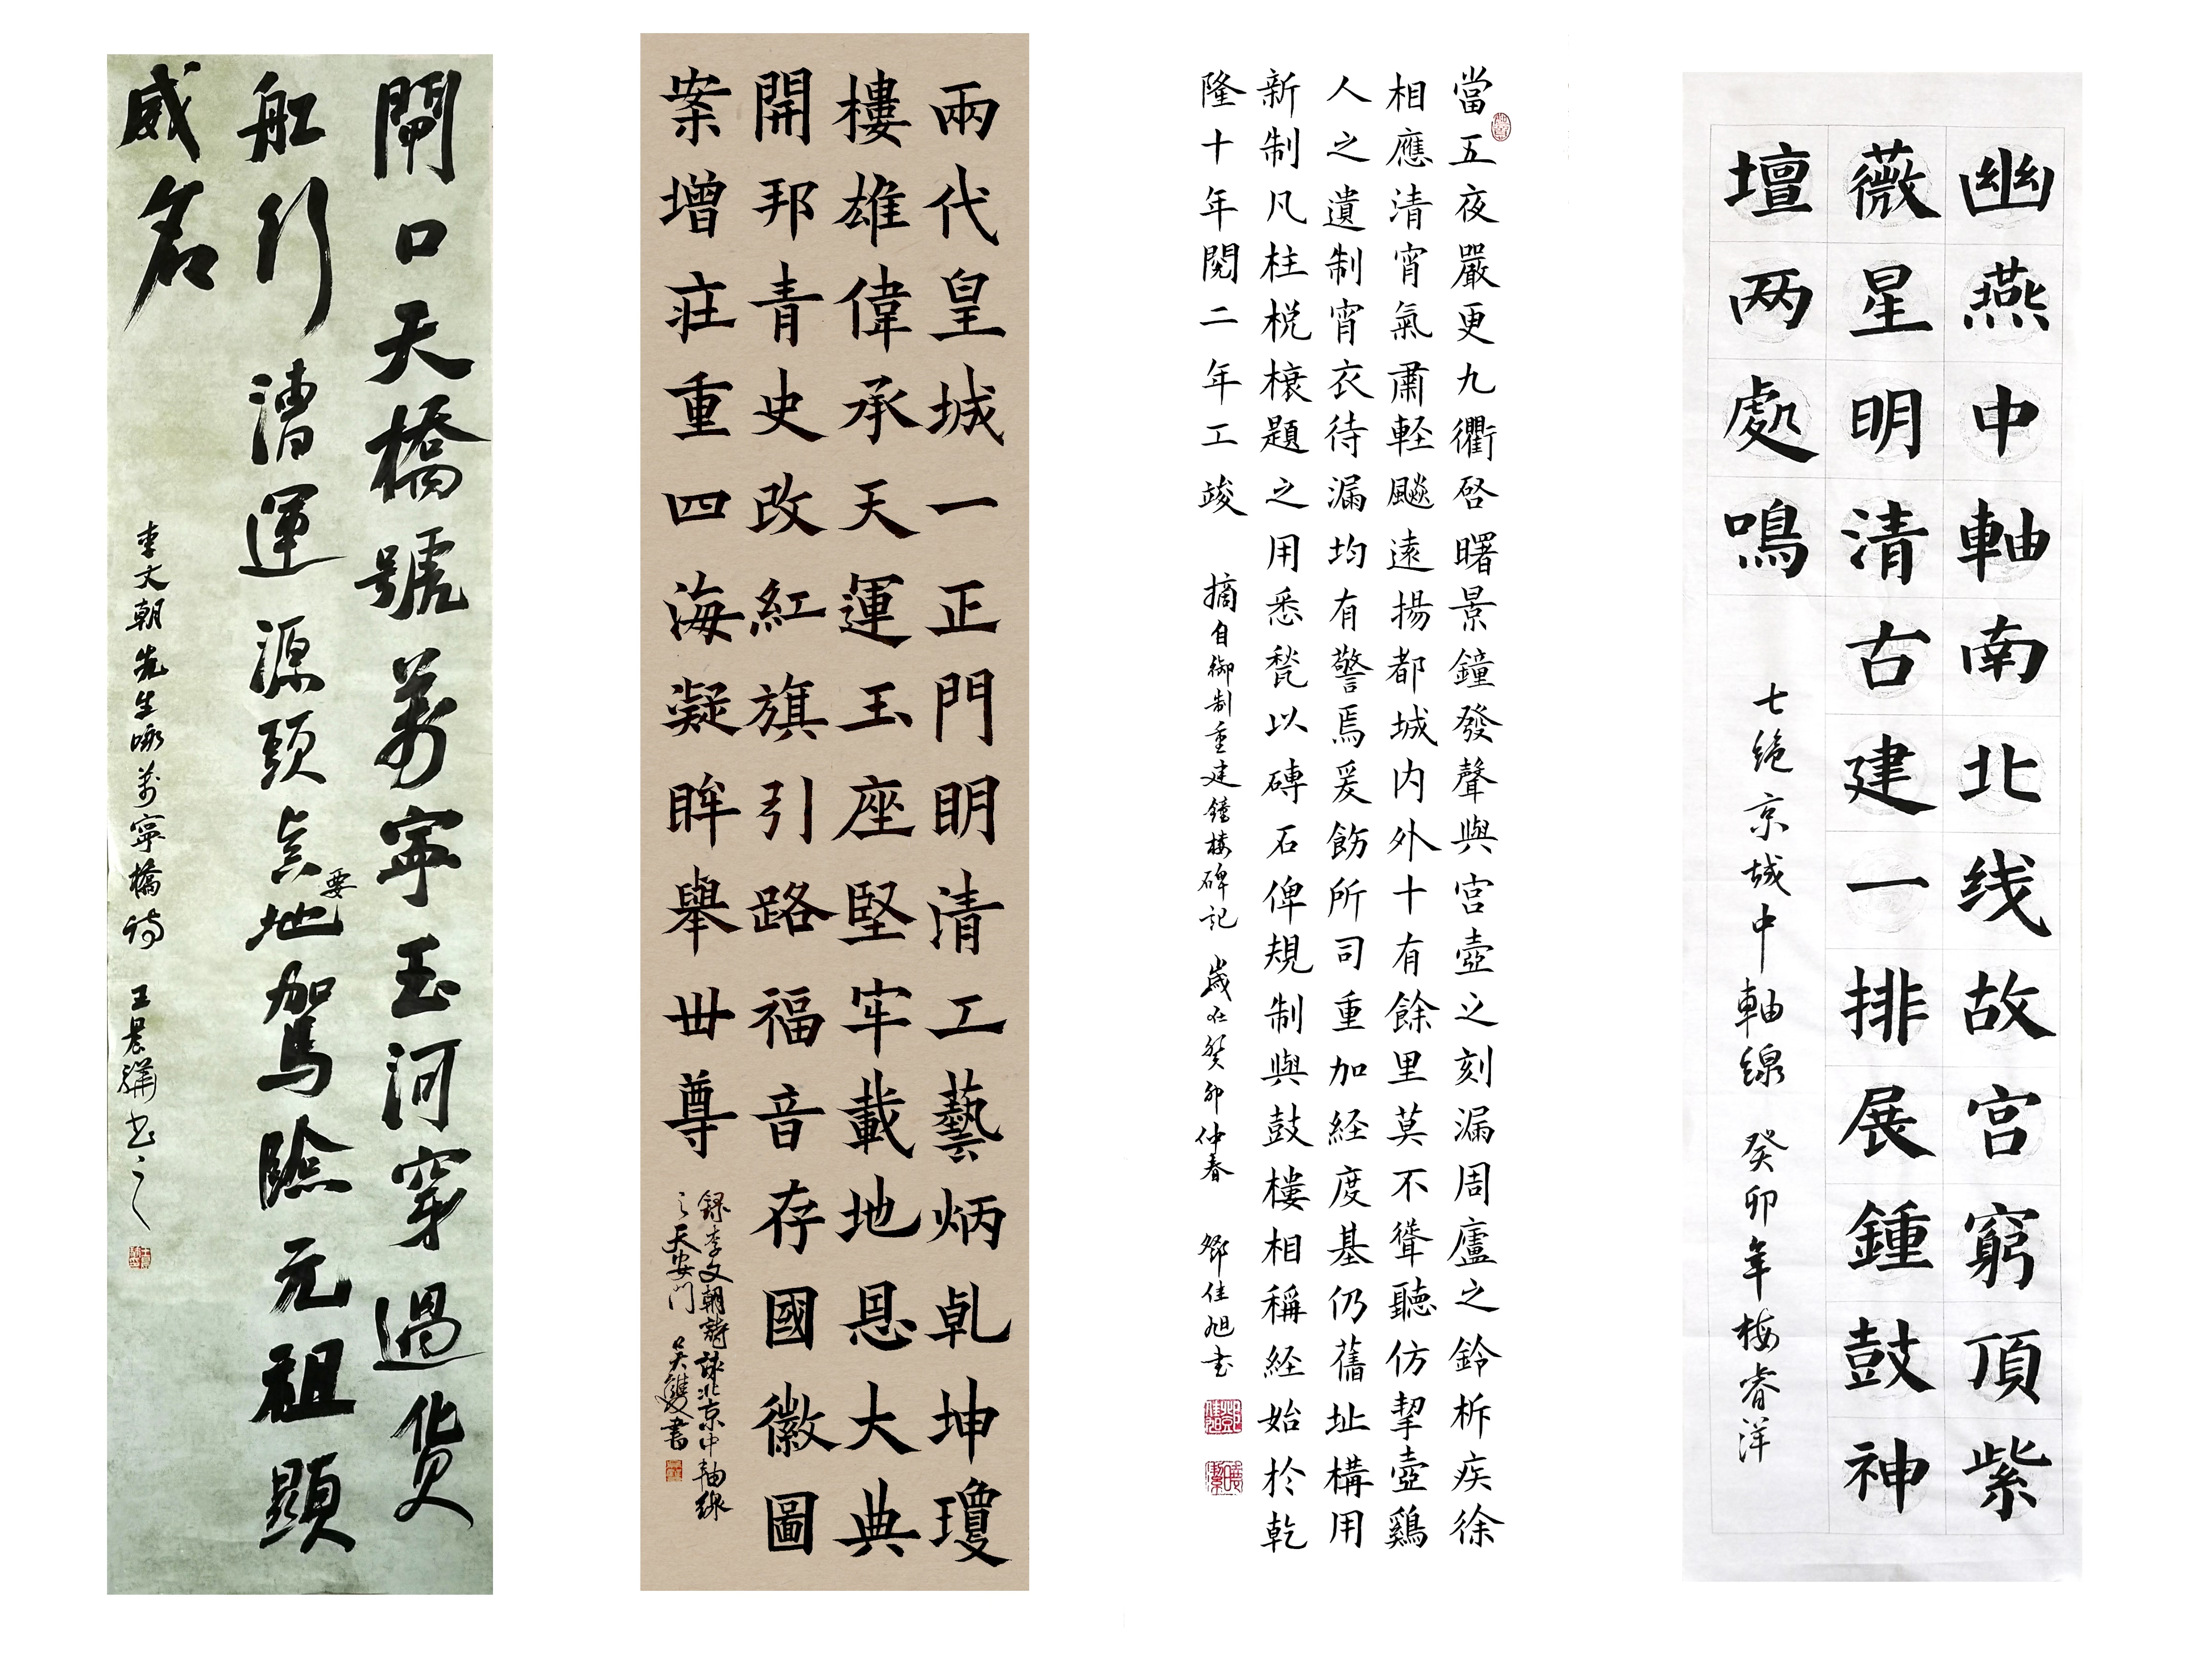 幽燕中軸南北线故宫窮頂紫
薇星明清古建一排展鍾鼓神
壇两處鳴
七绝京城中軸線 癸卯年梅睿洋
當五夜嚴更九衢啓曙景鐘發聲與宮壺之刻漏周廬之鈴柝疾徐
相應清宵氣肅軽飈遠揚都城内外十有餘里莫不聳聽仿挈壺鷄
人之遺制宵衣待漏均有警焉爰飭所司重加経度基仍舊址構用
新制凡柱棁榱題之用悉甃以磚石俾規制與鼓樓相稱経始於乾
隆十年閱二年工竣 摘自御制重建鐘楼碑記 歲在癸卯仲春 佳旭书
兩代皇城一正門明清工藝炳乹坤瓊
樓雄偉承天運玉座堅牢載地恩大典
開邦青史改紅旗引路福音存國徽圖
案增莊重四海凝眸舉世尊
錄李文朝詩詠北京中軸線
之天安門 吴雙書
閘口天橋號萬寧玉河穿過貨
船行漕運源頭真要地駕險元祖顯
威名
李文朝先生咏萬寧橋詩 王晨书之